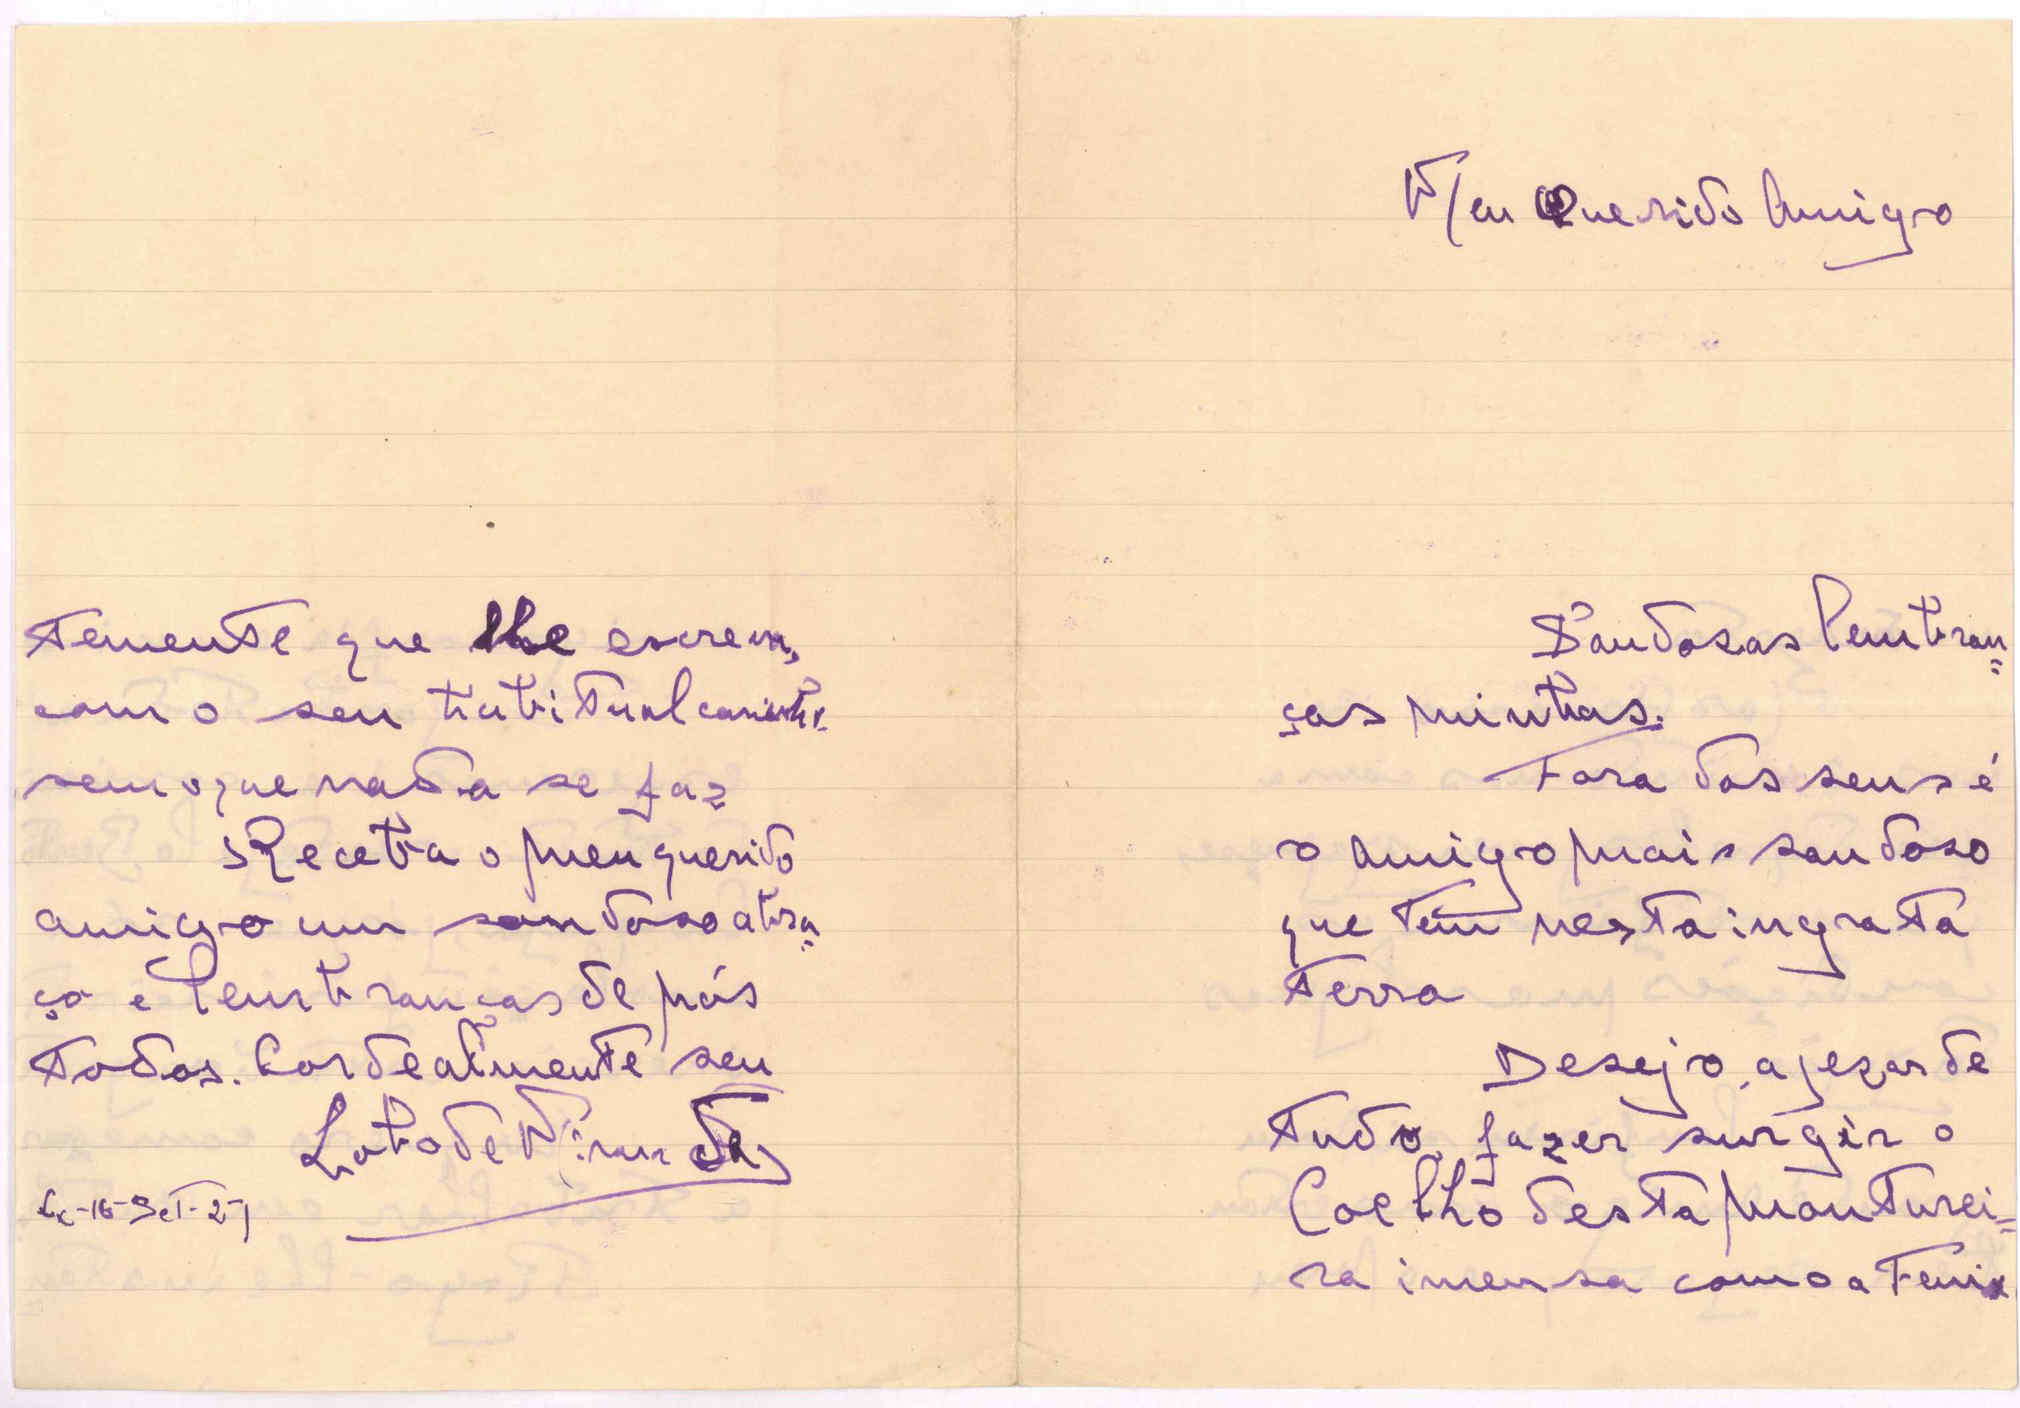 Meu Querido Amigo
Saudosas lembran=
ças minhas.
Fora dos seus é
o amigo mais saudoso
que têm nesta ingrata
terra
Desejo, apezar de
tudo, fazer surgir o
Coelho desta monturei=
ra imensa como a Fenix
temente que lhe
com o seu habitual carinho
sem o que nada se faz
Receba o meu querido
amigo um saudoso abra=
ço e lembranças de nós
todos. Cordealmente seu
Lobo de Miranda
Lx-16-Set-27